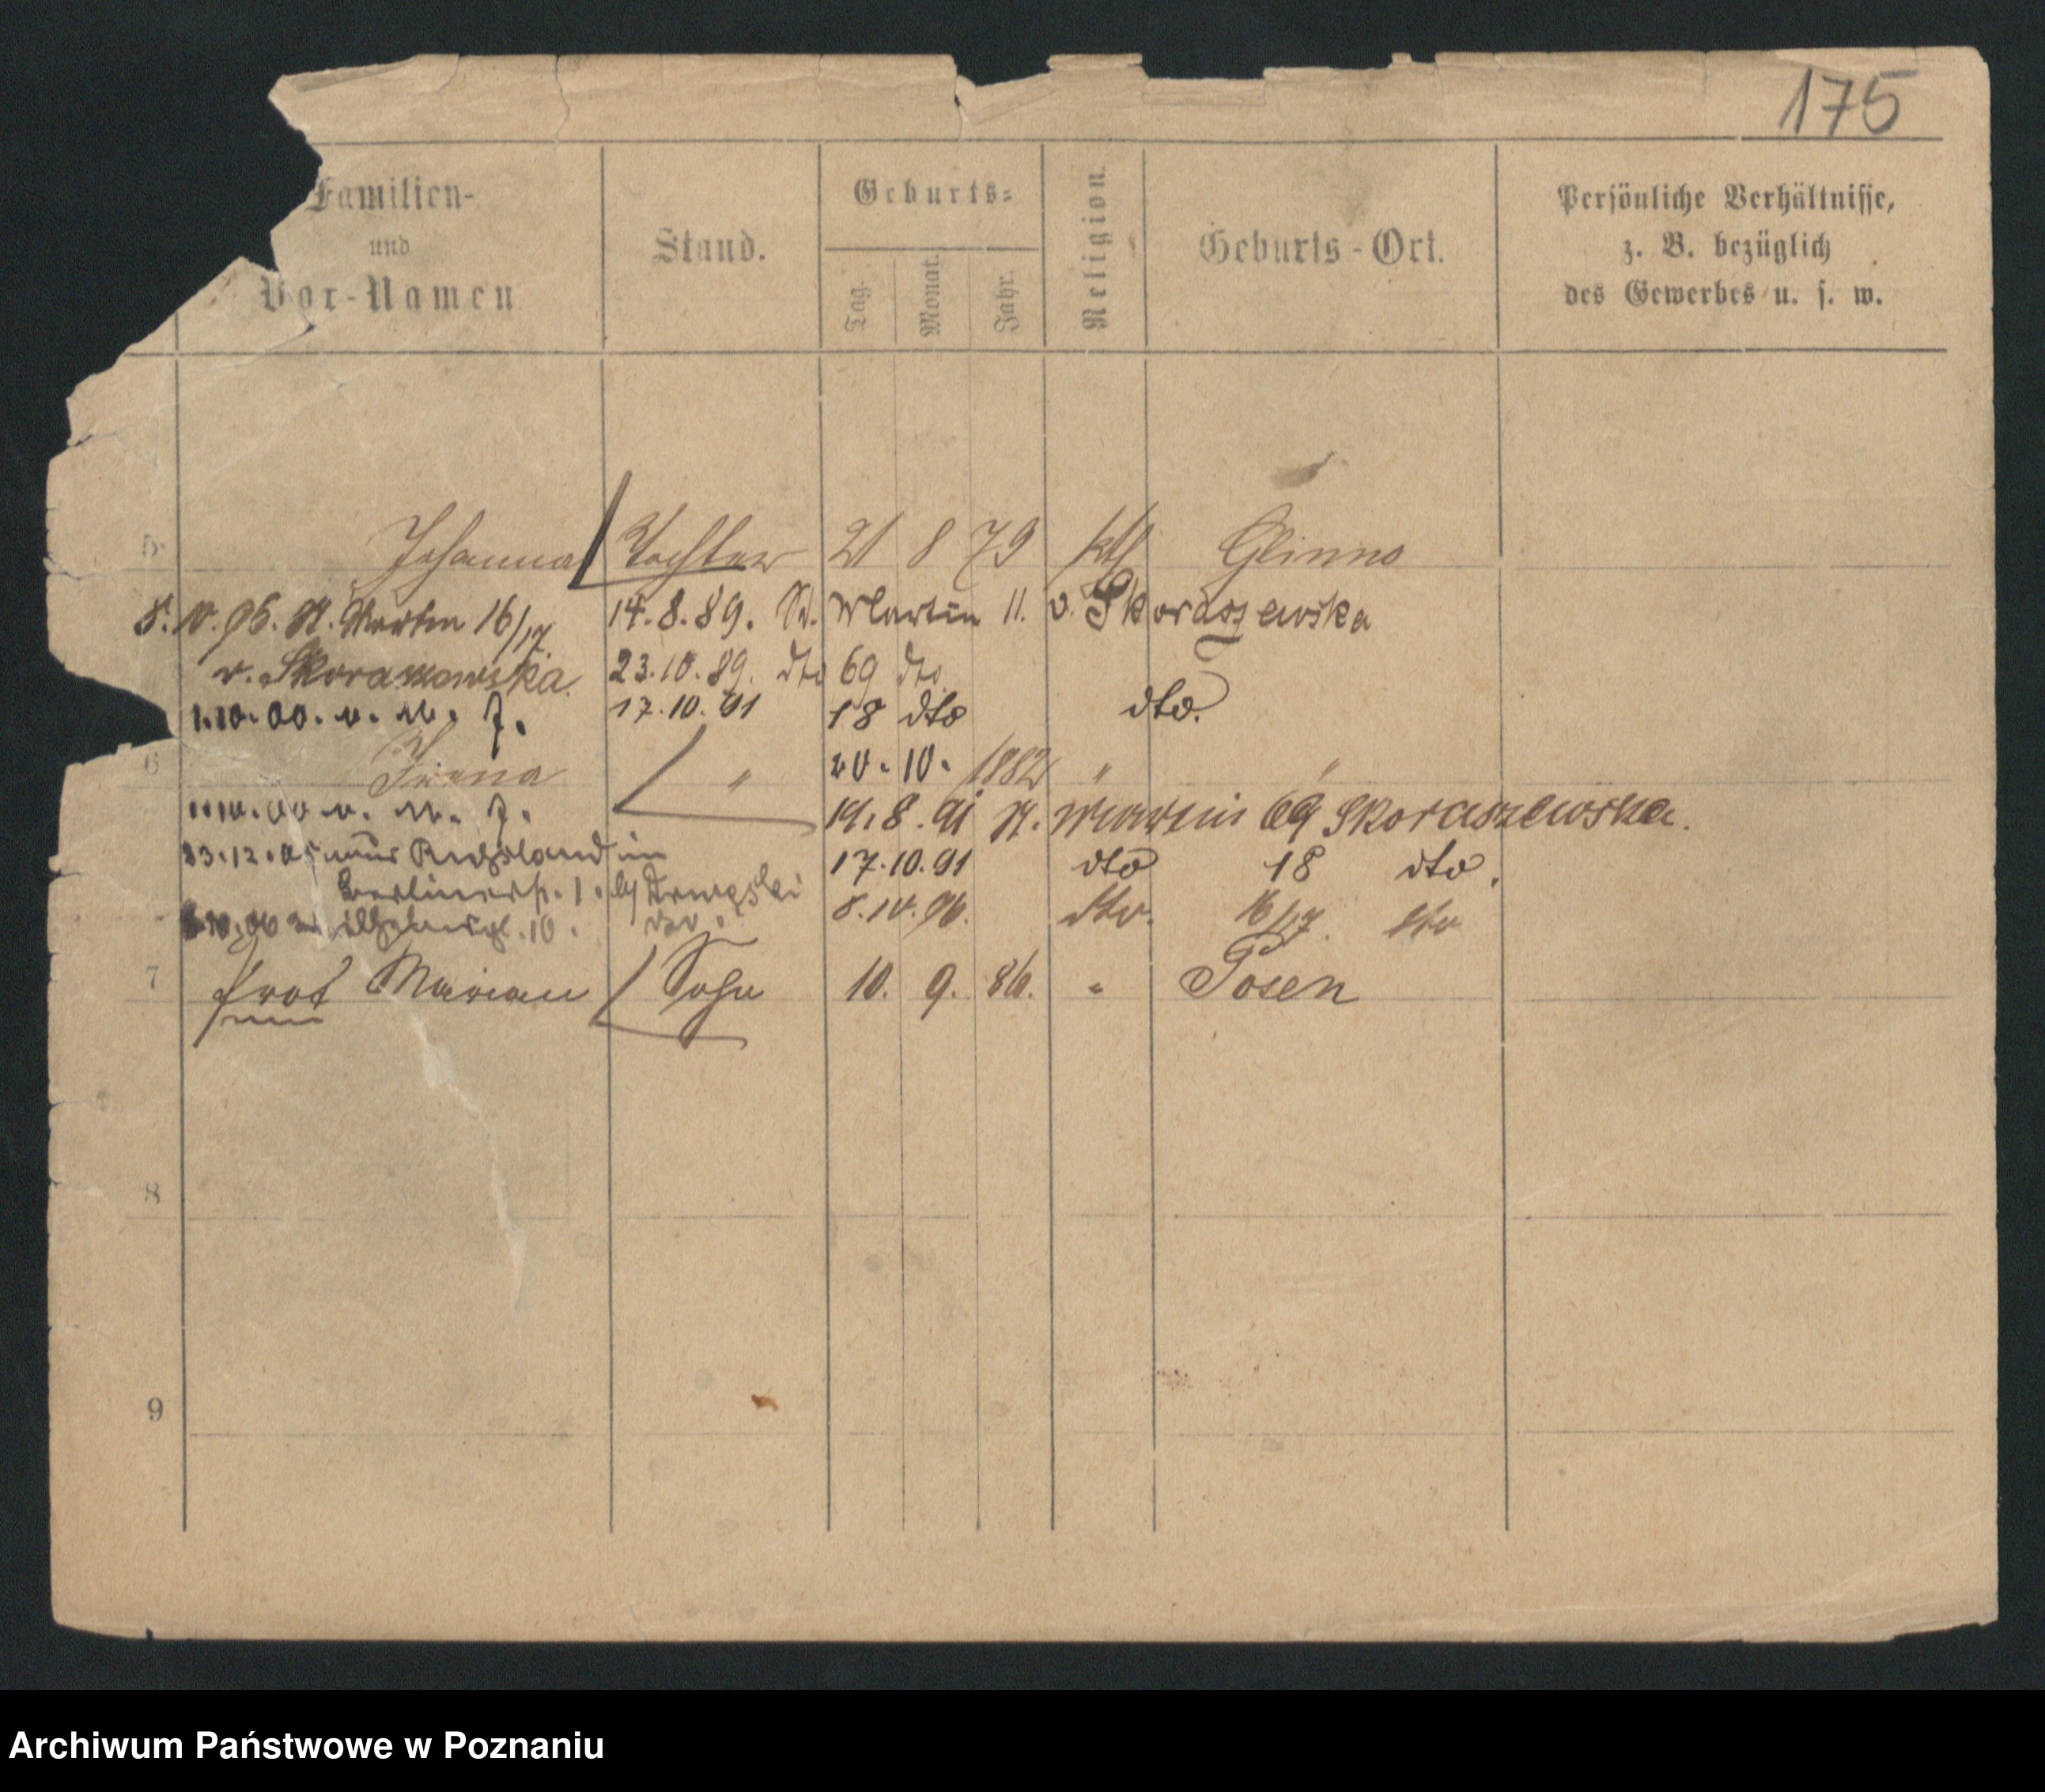 175
Familien-
und
Vor-Namen
Stand.
Geburts-
Tag.
Monat.
Jahr.
Religion.
Geburts-Ort.
Persönliche Verhältnisse,
z. B. bezüglich
des Gewerbes u. s. w.
5 Johanna Tochter 21 8 79 kth Glinno
8. 10. 96. St. Martin 16/17. 14. 8. 89. St. Martin 11. v. Skoraszewska
v. Skoraszewska. 23. 10. 89. dto 69 dto
1. 10. 00. v. M. 7. 17. 10. 91 18 dto dto.
6 Irena " 20. 10. 1882 " "
1. 10. 00 v. M. 7. 19. 8. 91 St. Martin 69 Skoraszewska.
23. 12. 05 aus Russland in 17. 10. 91 dto 18 dto.
Berlinerstr. 1. by 8. 10. 96. dto. 16/17. dto
10.
7 Marian Sohn 10. 9. 86. " Posen
8
9
Archiwum Państwowe w Poznaniu